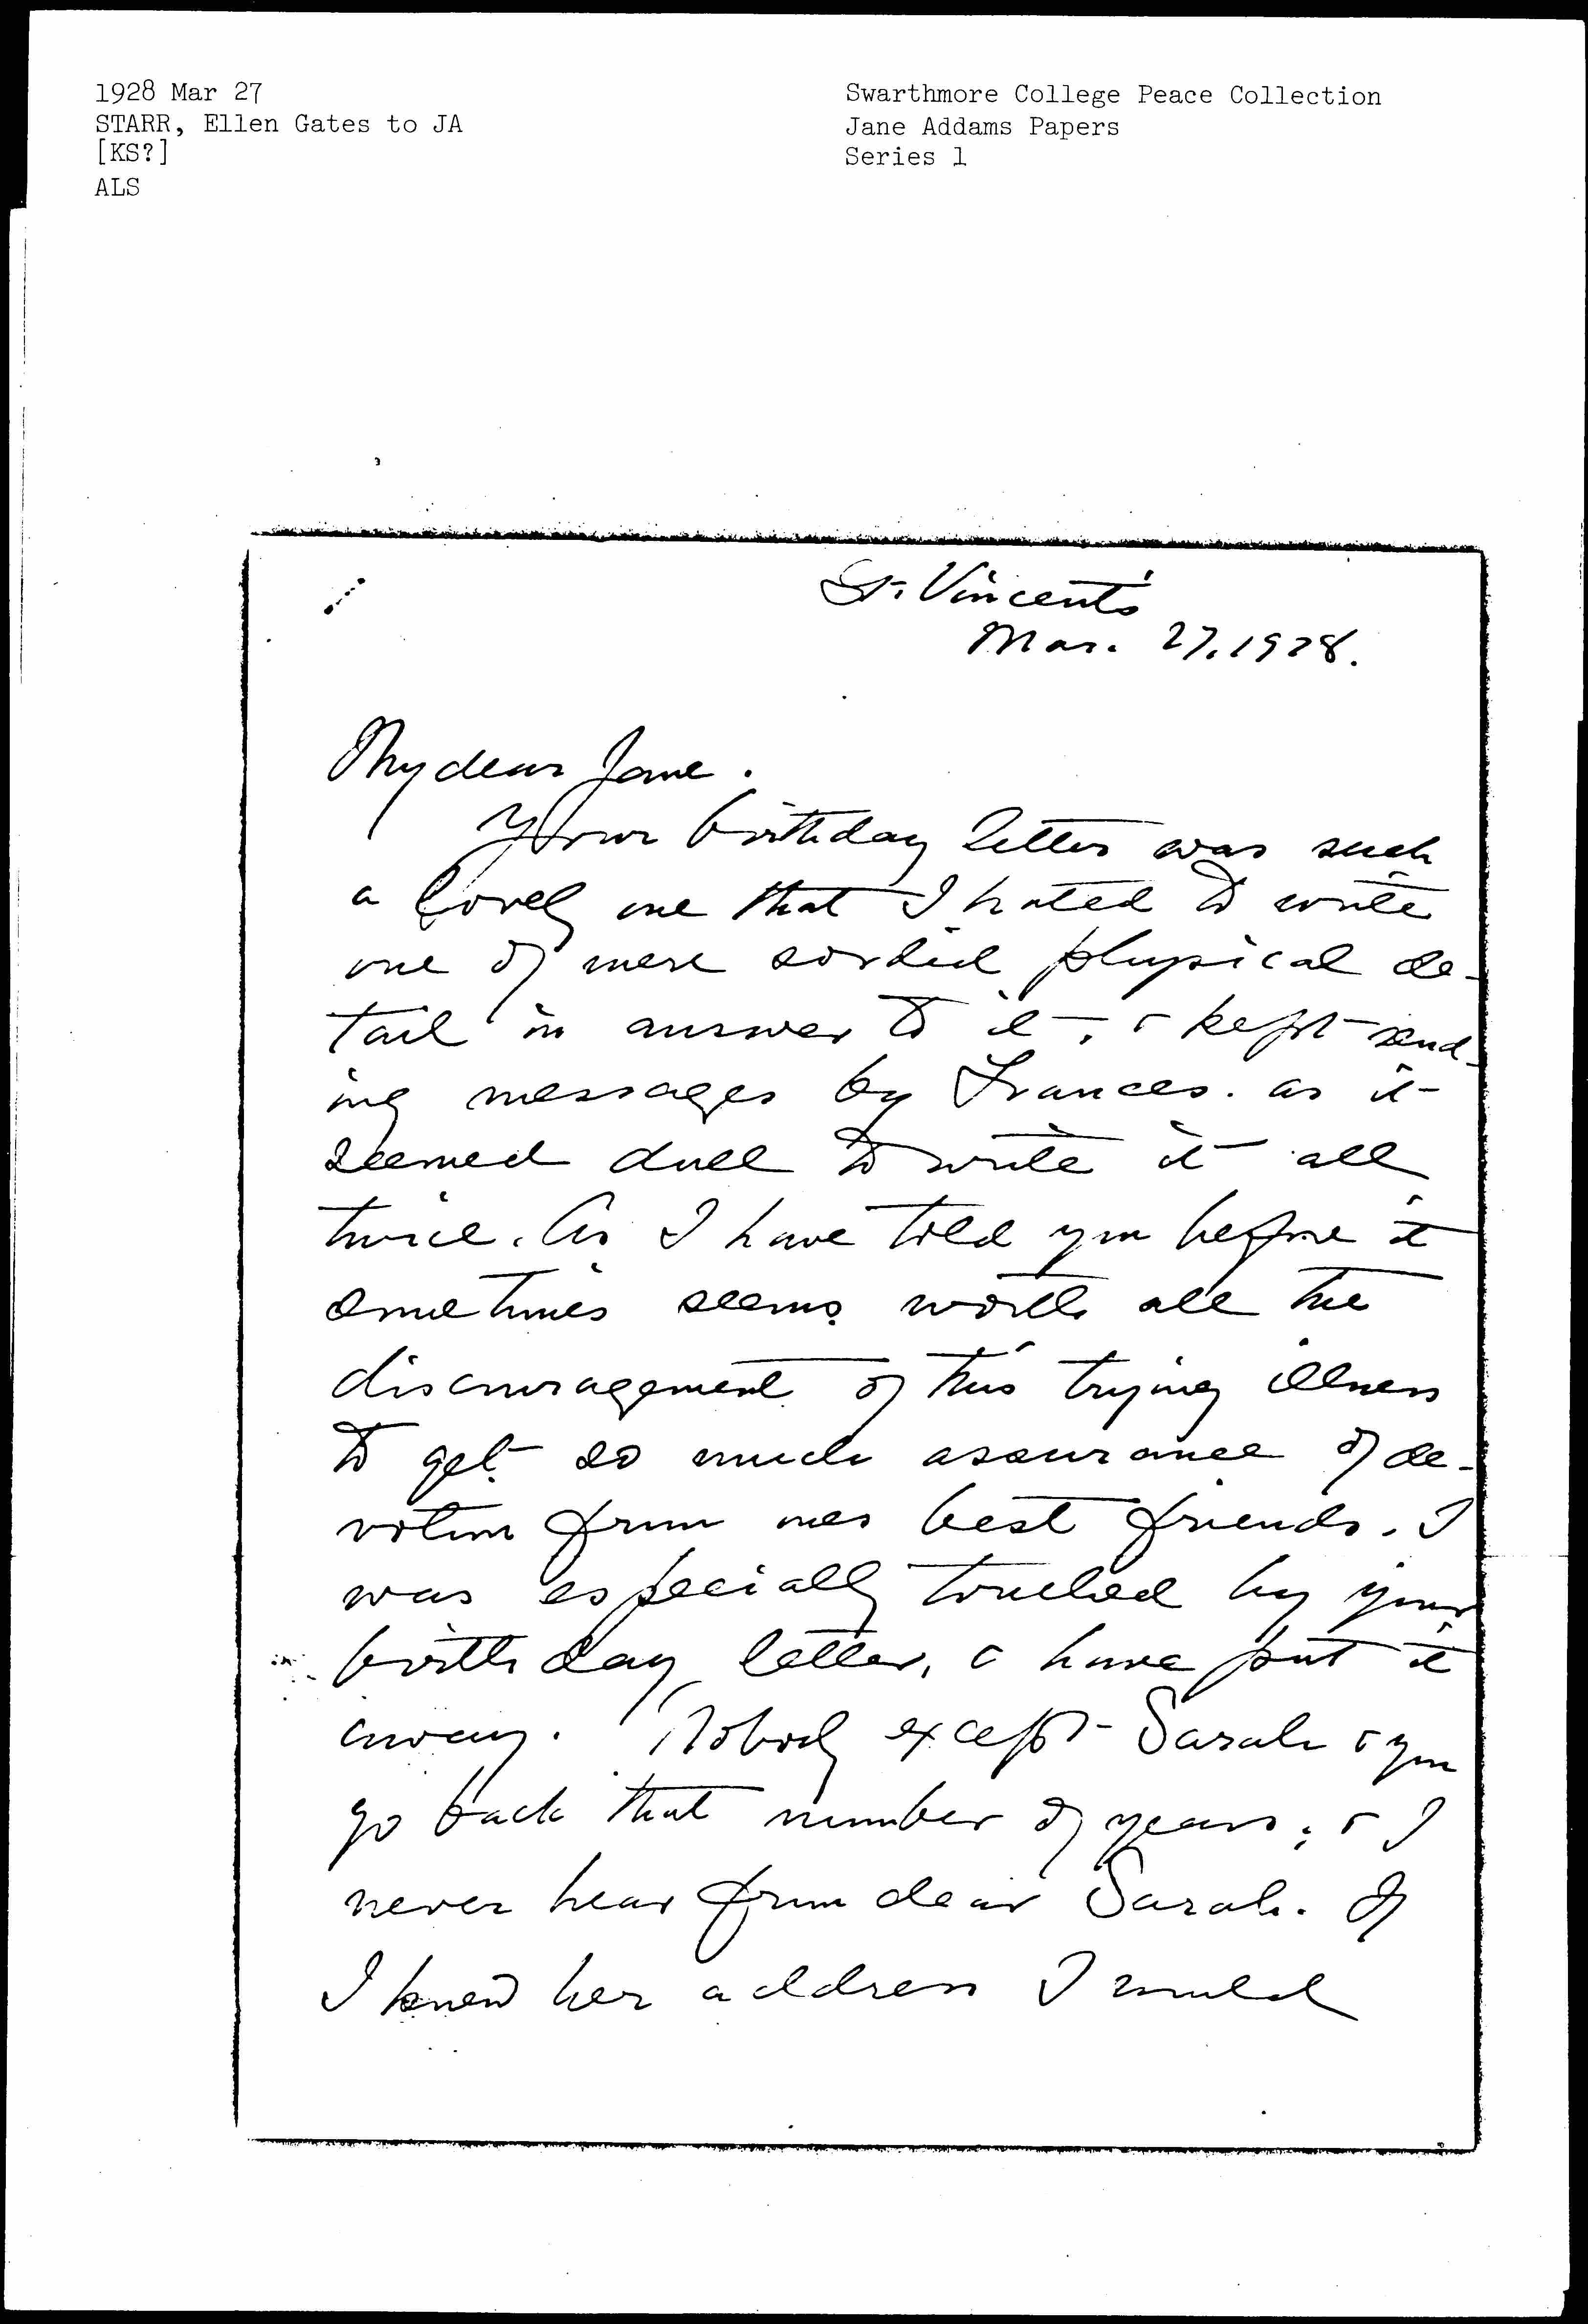 1928 Mar 27
STARR, Ellen Gates to JA
[KS?]
ALS
Swarthmore College Peace Collection
Jane Addams Papers
Series 1
St. Vincent's
Mar. 27, 1928.
My dear Jane.
Your birthday letter was such
a lovely one that I hated to write
one of mere sordid physical de-
tail in answer to it, & kept send-
ing messages by Frances. as it
seemed dull to write it all
twice. As I have told you before it
sometimes seems worth all the
discouragement of this trying illness
to get so much assurance of de-
votion from one's best friends. I
was especially touched by your
birthday letter, & have put it
away. Nobody except Sarah & you
go back that number of years; & I
never hear from dear Sarah. If
I knew her address I would